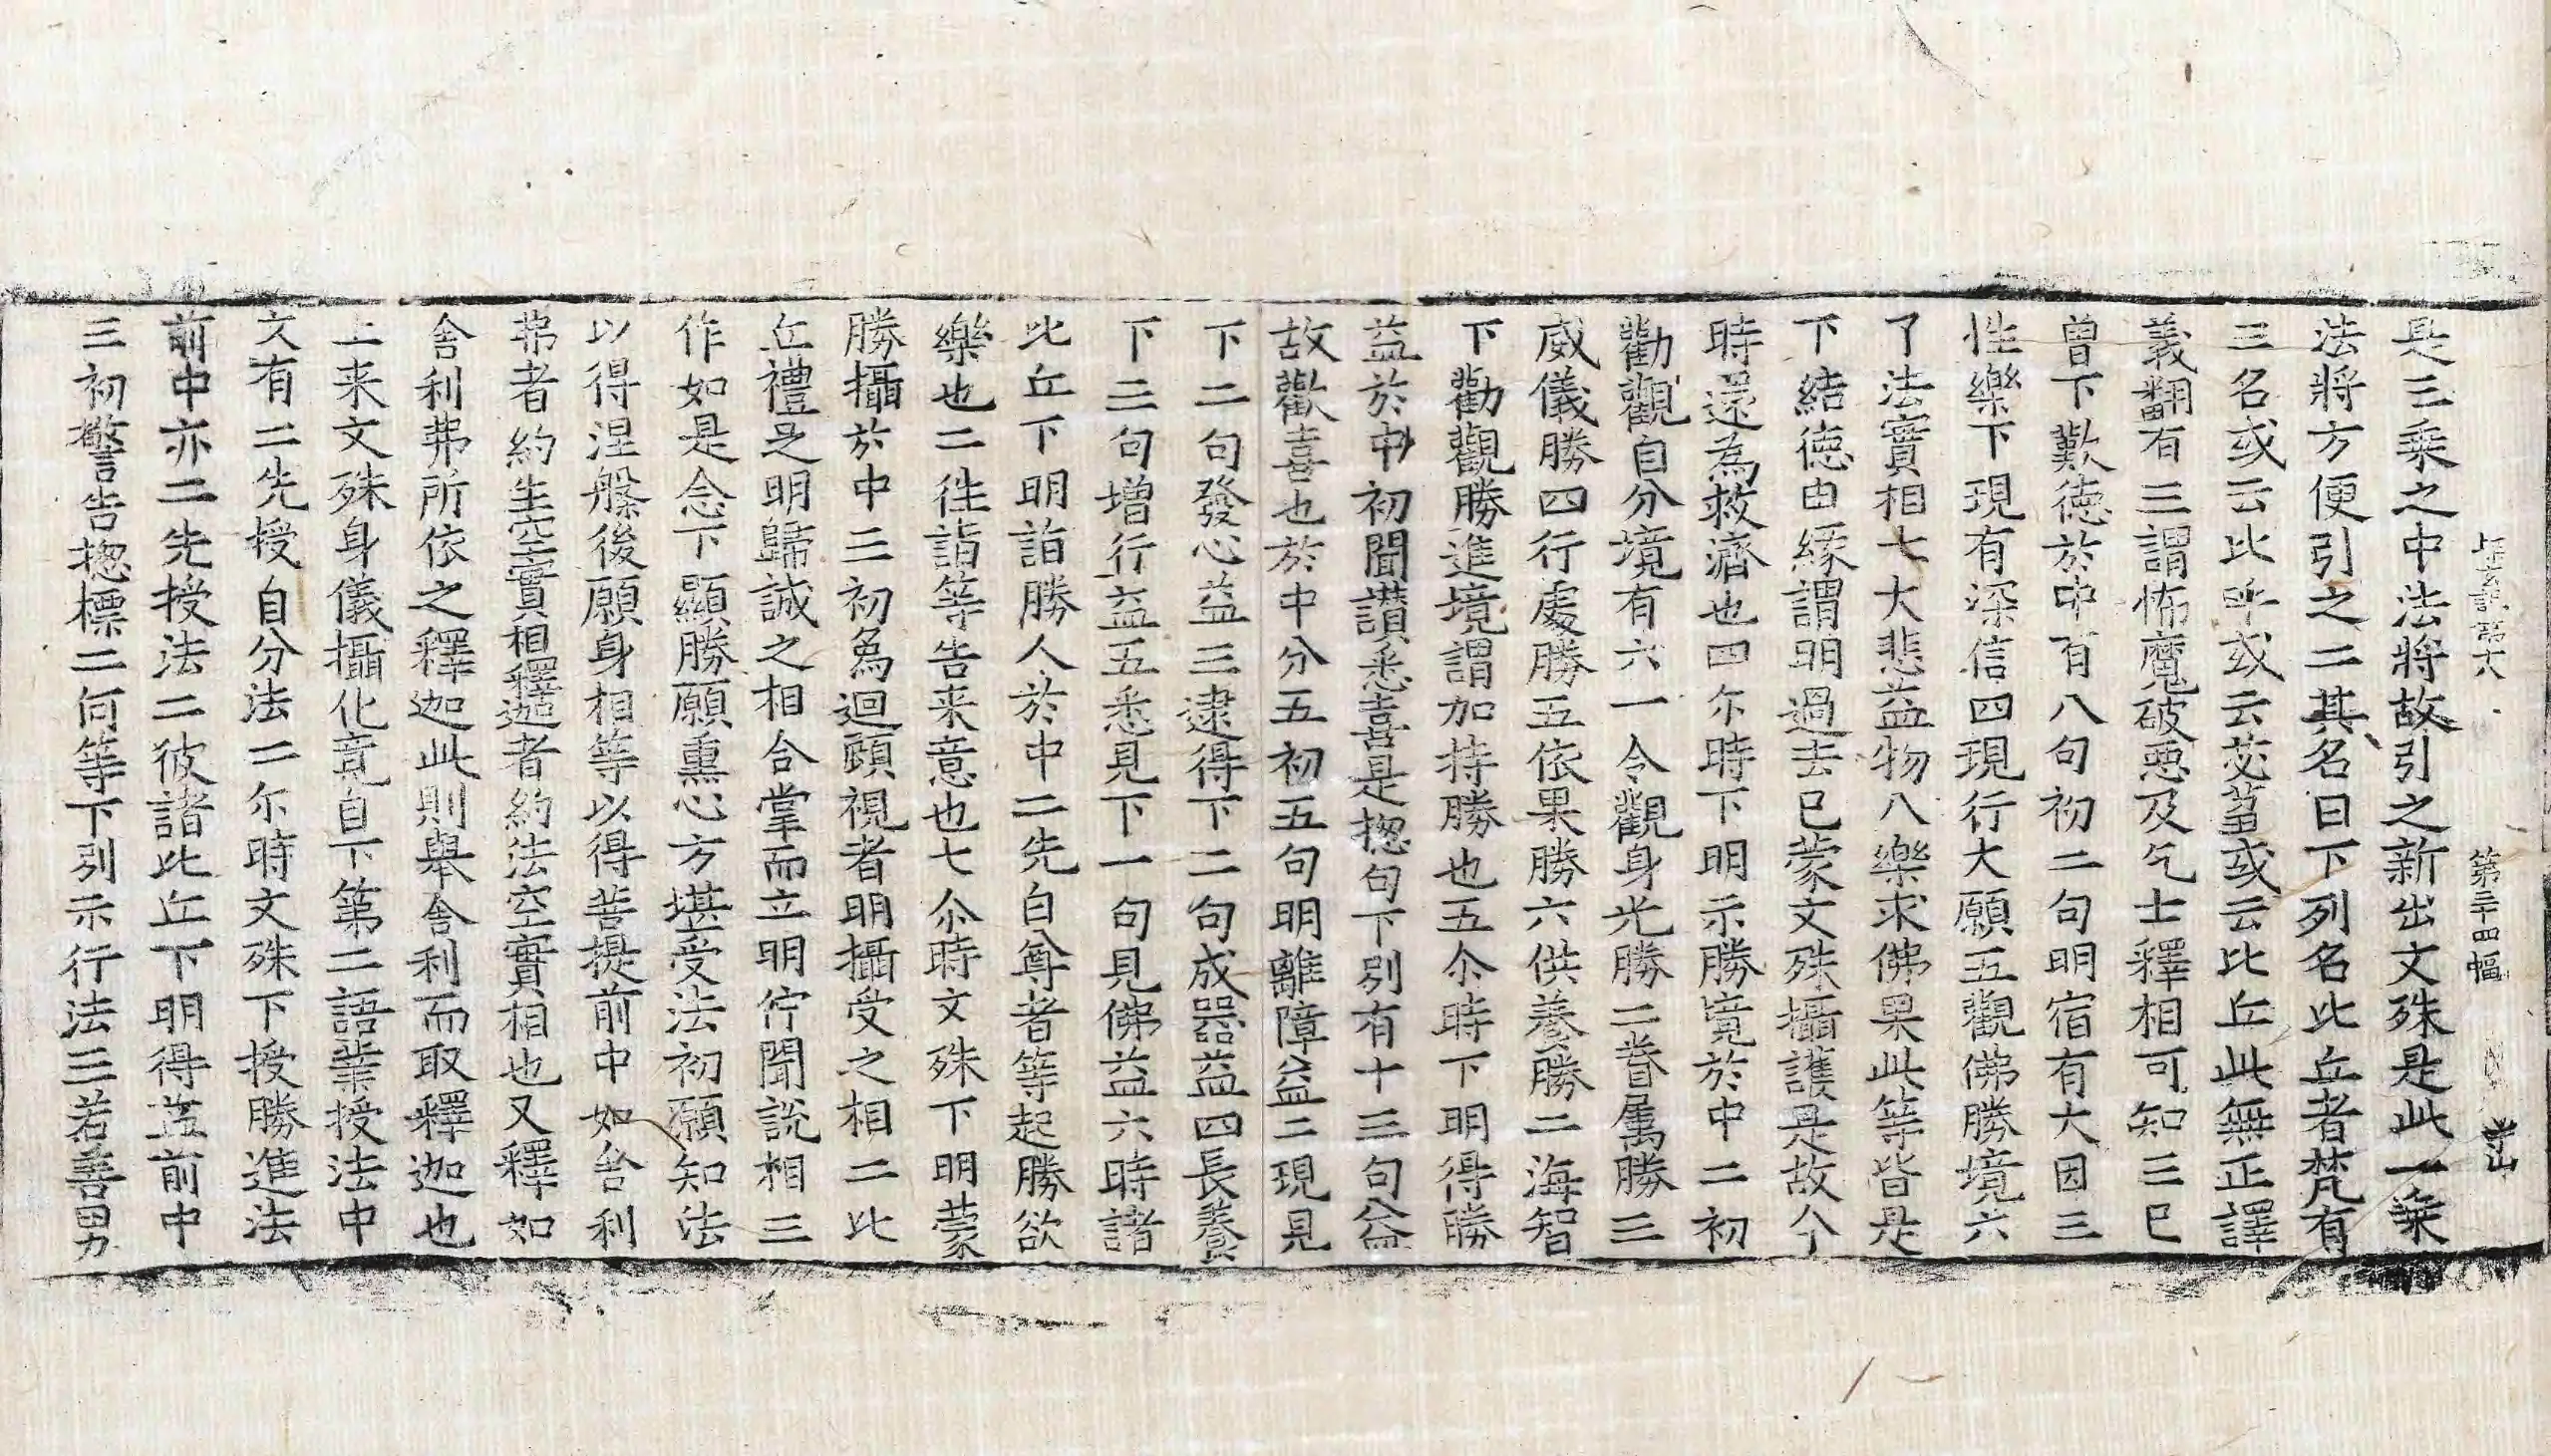 第三十四幅
是三乘之中法將故引之新出文殊是此一乘
法將方便引之二其名曰下列名比丘者梵有
三名或云比呼或云苾蒭或云比丘此無正譯
義翻有三謂怖魔破惡及乞士釋相可知三巳
曾下歎徳於中有八句初二句明宿有大因三
性樂下現有深信四現行大願五觀佛勝境六
了法實相七大悲益物八樂求佛果此等皆是
下結徳由縁謂明過去已蒙文殊攝護是故今
時還為救濟也四尒時下明示勝境於中二初
勸觀自分境有六一令觀身光勝二眷属勝三
威儀勝四行處勝五依果勝六供養勝二海智
下勸觀勝進境謂加持勝也五尒時下明得勝
益於中初聞讃悉喜是揔句下別有十三句益
故歡喜也於中分五初五句明離障益二現見
下二句發心益三逮得下二句成器益四長養
下三句增行益五悉見下一句見佛益六時諸
比丘下明詣勝人於中二先白尊者等起勝欲
樂也二徃詣等告来意也七尒時文殊下明蒙
勝攝於中三初爲迴頋視者明攝受之相二比
丘禮是明歸誠之相合掌而立明佇聞説相三
作如是念下顯勝願熏心方堪受法初願知法
以得涅槃後願身相等以得菩提前中如舎利
弗者約生空實相釋迦者約法空實相也又釋如
舎利弗所依之釋迦此則舉舎利而取釋迦也
上来文殊身儀攝化竟自下第二語業授法中
文有二先授自分法二尒時文殊下授勝進法
前中亦二先授法二彼諸比丘下明得益前中
三初警告揔標二何等下別示行法三若善男